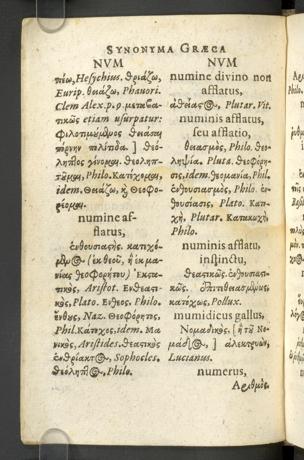 SYNONYMA GRÆCA
NVM
πέω, Hesychius. θριάζω,
Eurip. θειάζω, Phavori.
Clem Alex. p. 9. μεταβα-
τικῶς etiam usurpatur:
πόρνην πολίτιδα. ] θεό-
ληπτος γίνομαι. Θεοληπ-
τοῦμαι, Philo. Κατέχομαι,
idem. Θειάζω, κ Θεοφο-
ρέομαι.
numine af-
flatus,
ἐνθουσιαστὴς. κατεχό-
μεν@ (ἐκ θεοῦ, ἢ ἐκ μα-
νίας θεοφορήτου) Ἐκστα-
τικὸς, Aristot. Ἐνθεαστι-
κὸς, Plato. Ἔνθεος, Philo.
ἔνθους, Naz. Θεοφόρητος,
Phil. Κάτοχος, idem. Μα
νικὸς, Aristides. Θεατικὸς
Sophocles,
Philo.
NVM
numine divino non
afflatus,
ἀθείας@, Plutar. Vit.
numinis afflatus,
seu afflatio,
θειασμὸς, Philo. θεο-
ληψία. Pluta. Θεοφόρη-
σις, idem. θεομανία, Phil.
ἐνθουσιασμὸς, Philo. ἐν-
θουσίασις, Plato. Κατο-
χὴ, Plutar. Κατοκωχὴ,
Philo.
numinis afflatu,
instinctu,
θεατικῶς. ἐνθουσιαστι-
κῶς. ἐπιτεθειασμένως,
κατόχως, Pollux.
mumidicus gallus,
Νομαδικὸς, [ἢ τῶ Νο-
μάδ@, ] ἀλεκτρυὼν,
Lucianus.
numerus,
Ἀριθμὸς.